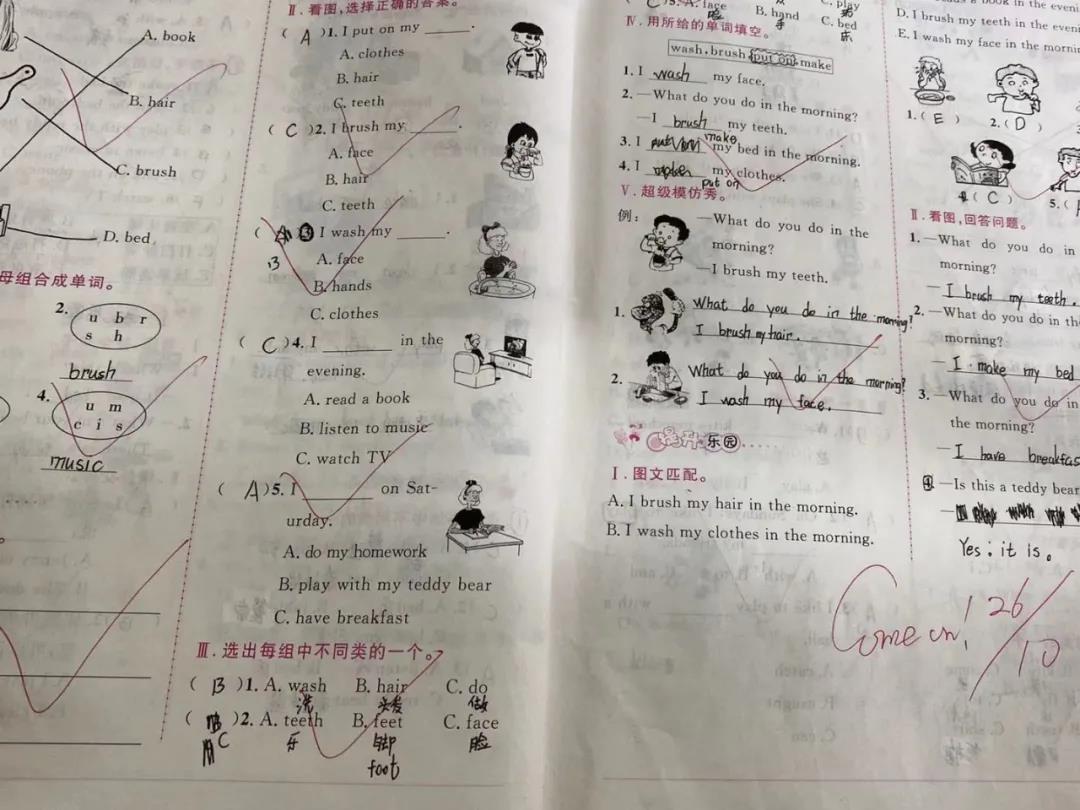 A. book
B. hair
C. brush
D. bed
母组合成单词。
2.
u b r
s h
brush
4.
u m
c i s
music
Ⅱ. 看图,选择正确的答案。
( A )1. I put on my ____.
A. clothes
B. hair
C. teeth
( C )2. I brush my ____.
A. face
B. hair
C. teeth
I wash my ____.
B
A. face
B. hands
C. clothes
( C )4. I ____ in the
evening.
A. read a book
B. listen to music
C. watch TV
( A )5. I ____ on Sat-
urday.
A. do my homework
B. play with my teddy bear
C. have breakfast
Ⅲ. 选出每组中不同类的一个。
( B )1. A. wash B. hair C. do
洗 头发 做
( )2. A. teeth B. feet C. face
C 牙 脚 脸
foot
( C )5. A. face B. hand C. bed
脸 手 床
C. play
Ⅳ. 用所给的单词填空。
wash, brush, put on, make
1. I wash my face.
2. —What do you do in the morning?
—I brush my teeth.
make
3. I put on my bed in the morning.
4. I my clothes.
put on
Ⅴ. 超级模仿秀。
例:
—What do you do in the
morning?
—I brush my teeth.
1.
What do you do in the morning?
I brush my hair.
2.
What do you do in the morning?
I wash my face.
提升乐园
Ⅰ. 图文匹配。
A. I brush my hair in the morning.
B. I wash my clothes in the morning.
book in the eveni
D. I brush my teeth in the even
E. I wash my face in the mornin
1. ( E ) 2. ( D )
( C ) 5. (
Ⅱ. 看图,回答问题。
1. —What do you do in
morning?
—I brush my teeth.
2. —What do you do in th
morning?
—I make my bed
3. —What do you do in
the morning?
—I have breakfas
—Is this a teddy bear
Yes, it is.
Come on! 26/10